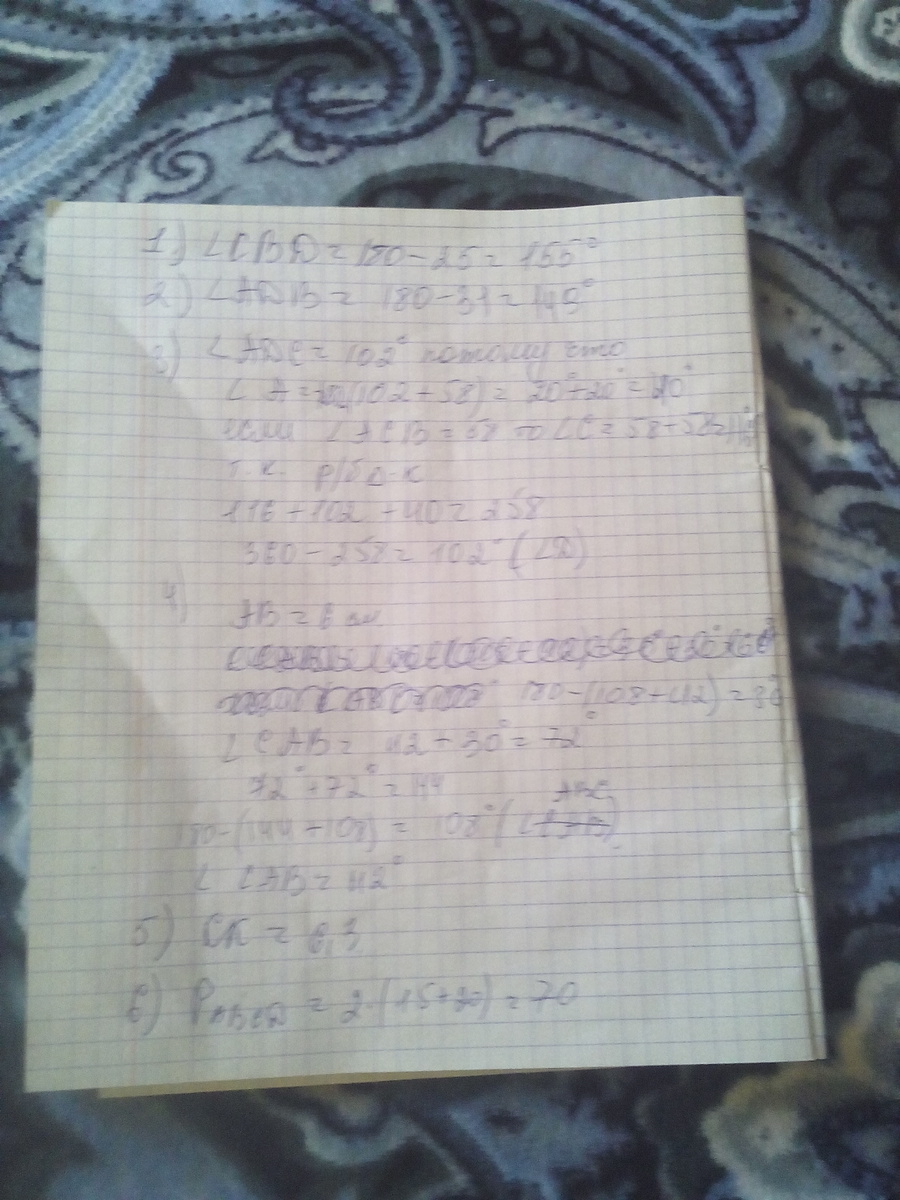 1) ∠CBD = 180 - 25 = 155°
2) ∠ADB = 180 - 31 = 149°
3) ∠ADC = 102° потому что
∠A = (102 + 58) = 20° + 20° = 40°
если ∠ACB = 58 то ∠C = 58 + 58 =
т.к. р/б Δ-к
116 + 102 + 40 = 258
360 - 258 = 102° (∠D)
4)
AB = 6 см
180 - (108 + 42) = 30
∠CAB = 42 + 30° = 72°
72° + 72° = 144
ABC
- (144 + 108) = 108° (∠
∠ CAB = 42°
5) CK = 8,3
6) P ABCD = 2 · (15 + 20) = 70